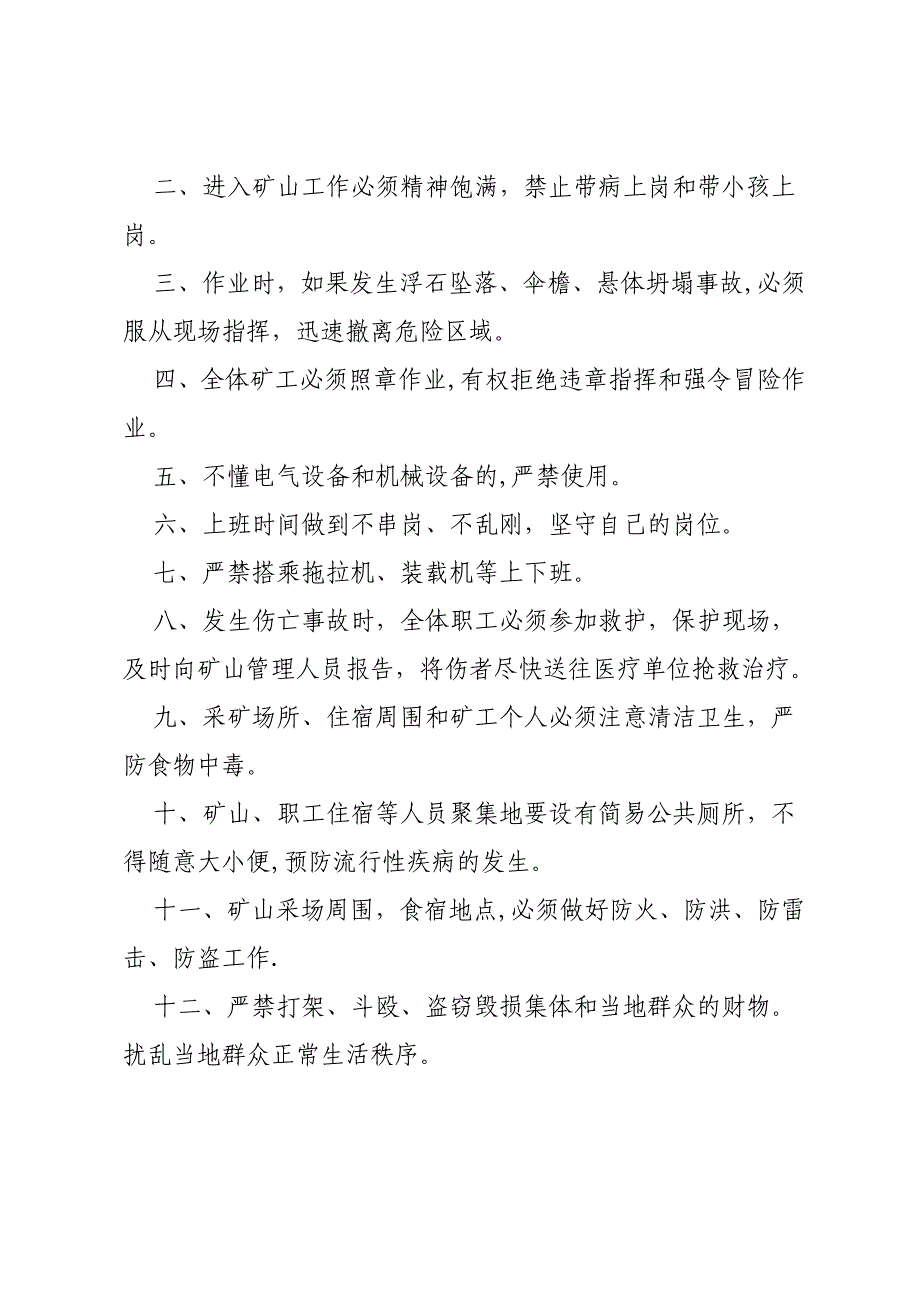 二、进入矿山工作必须精神饱满，禁止带病上岗和带小孩上
岗。
三、作业时，如果发生浮石坠落、伞檐、悬体坍塌事故,必须
服从现场指挥，迅速撤离危险区域。
四、全体矿工必须照章作业,有权拒绝违章指挥和强令冒险作
业。
五、不懂电气设备和机械设备的,严禁使用。
六、上班时间做到不串岗、不乱刚，坚守自己的岗位。
七、严禁搭乘拖拉机、装载机等上下班。
八、发生伤亡事故时，全体职工必须参加救护，保护现场，
及时向矿山管理人员报告，将伤者尽快送往医疗单位抢救治疗。
九、采矿场所、住宿周围和矿工个人必须注意清洁卫生，严
防食物中毒。
十、矿山、职工住宿等人员聚集地要设有简易公共厕所，不
得随意大小便,预防流行性疾病的发生。
十一、矿山采场周围，食宿地点,必须做好防火、防洪、防雷
击、防盗工作.
十二、严禁打架、斗殴、盗窃毁损集体和当地群众的财物。
扰乱当地群众正常生活秩序。